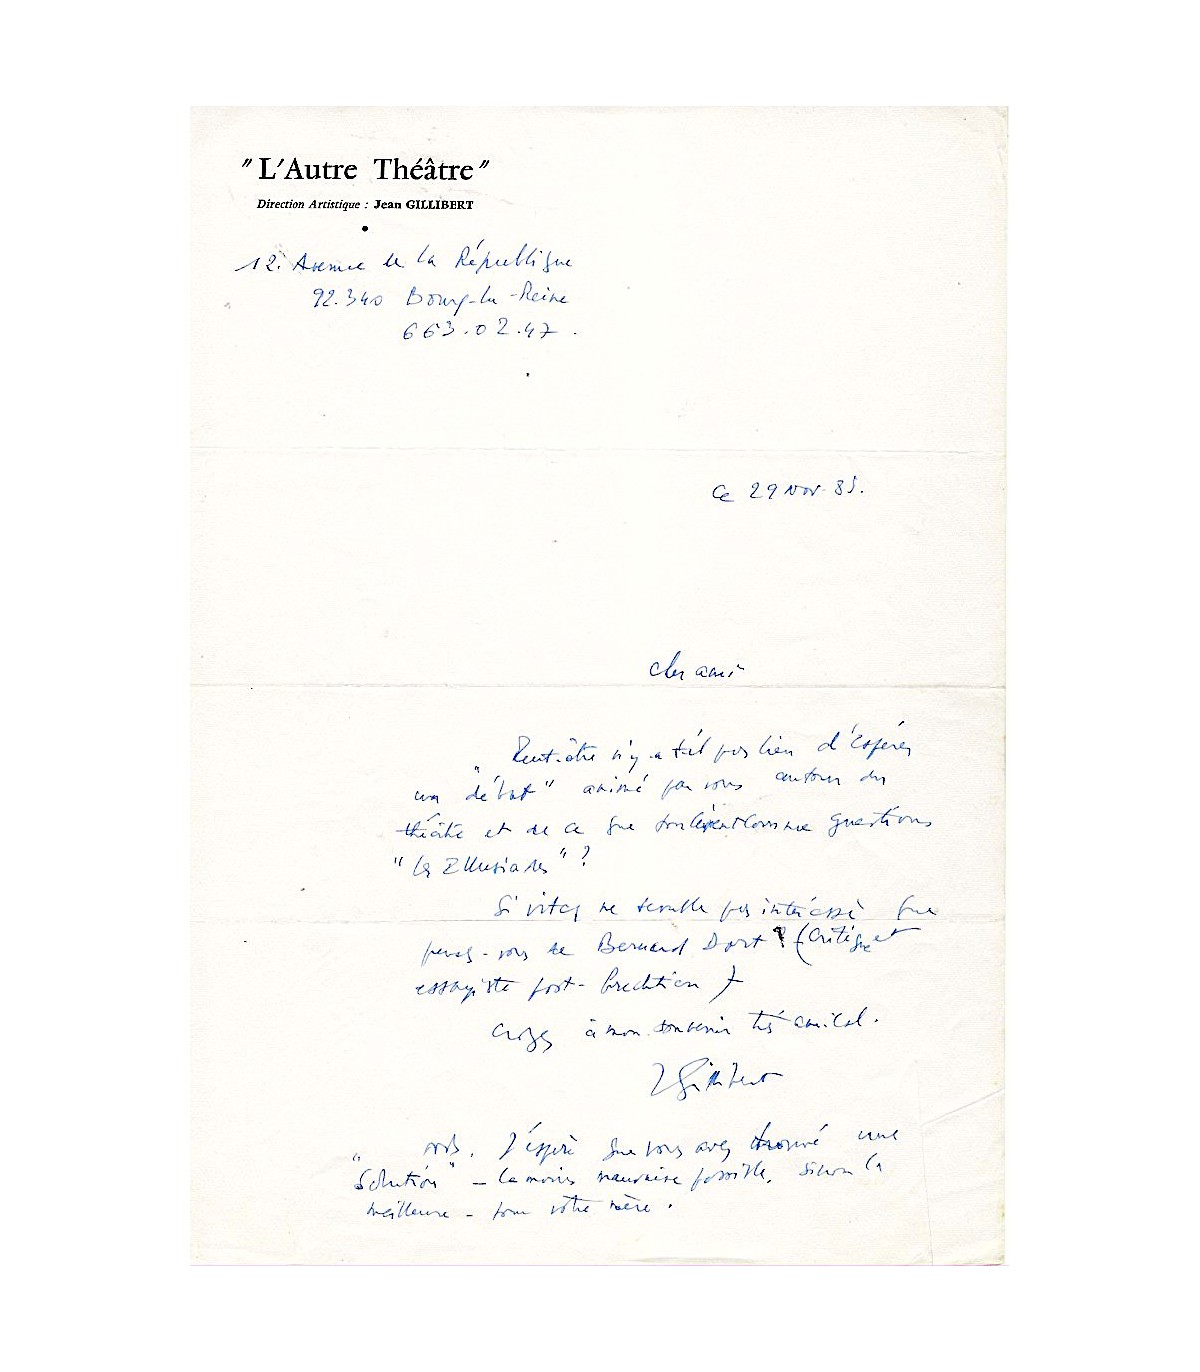 "L'Autre Théâtre"
Direction Artistique : Jean GILLIBERT
12. Avenue de la République
92.340 Bourg-la-Reine
663.02.47.
Ce 29 Nov. 85.
Cher ami
Peut-être n'y a t-il pas lieu d'espérer
un "débat" animé par vous autour du
théâtre et de ce que comme questions
"les Illusiades" ?
Si Vitez ne semble pas intéressé que
pensez-vous de Bernard Dort ? (critique et
essayiste post-brechtien)
Croyez à mon souvenir très amical.
JGillibert
J'espère que vous avez trouvé une
"solution" - la moins mauvaise possible, sinon la
meilleure - pour votre mère.